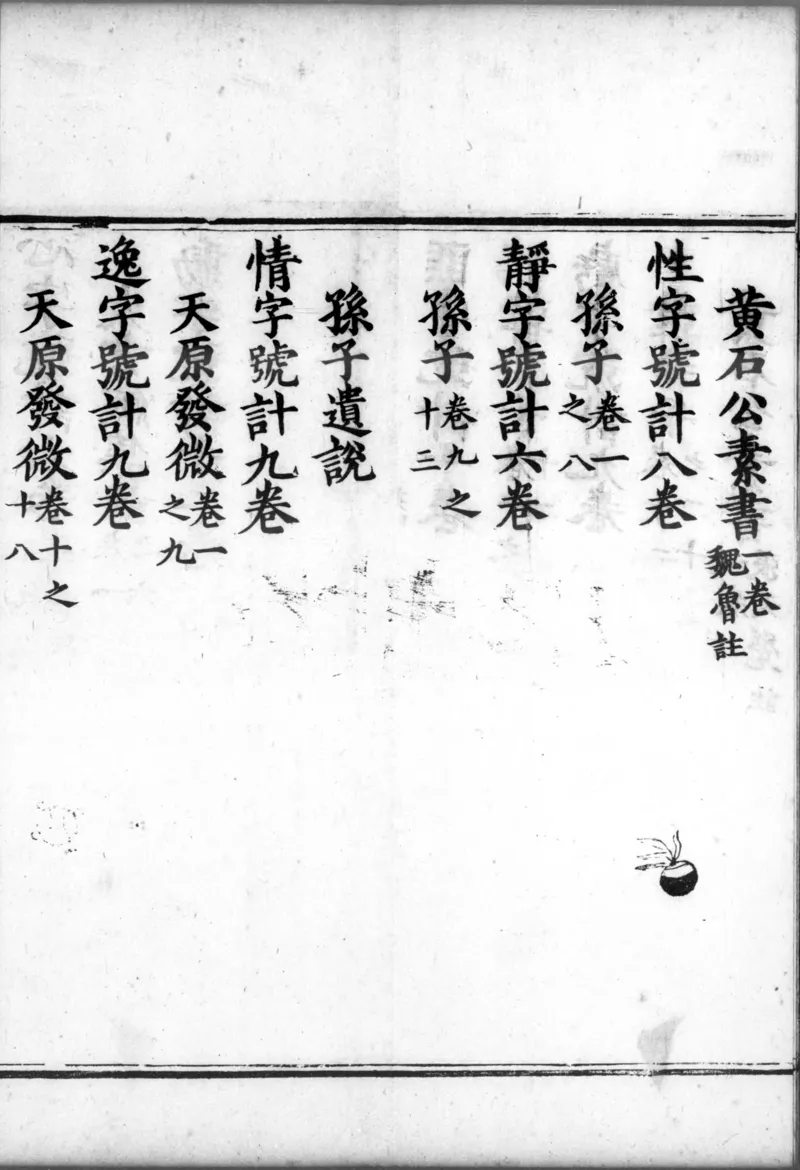 黄石公素書一卷魏魯註
性字號計八卷
孫子卷一之八
靜字號計六卷
孫子卷九之十三
孫子遺說
情字號計九卷
天原發微卷一之九
逸字號計九卷
天原發微卷十之十八